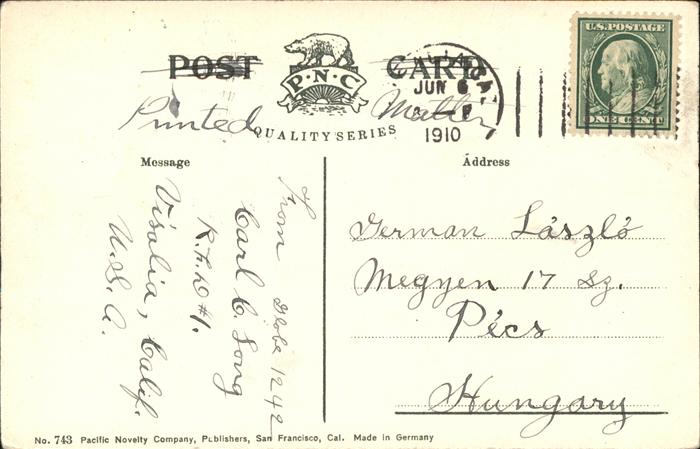 POST CARD
P·N·C
QUALITY SERIES
Printed Matter
VISALIA, CAL.
JUN 6
1910
U.S. POSTAGE
ONE CENT
Message
Address
From Globe 1242
Carl C. Long
R.F.D #1.
Visalia, Calif.
U.S.A.
German László
Megyen 17 Sz.
Pécs
Hungary
No. 743 Pacific Novelty Company, Publishers, San Francisco, Cal. Made in Germany